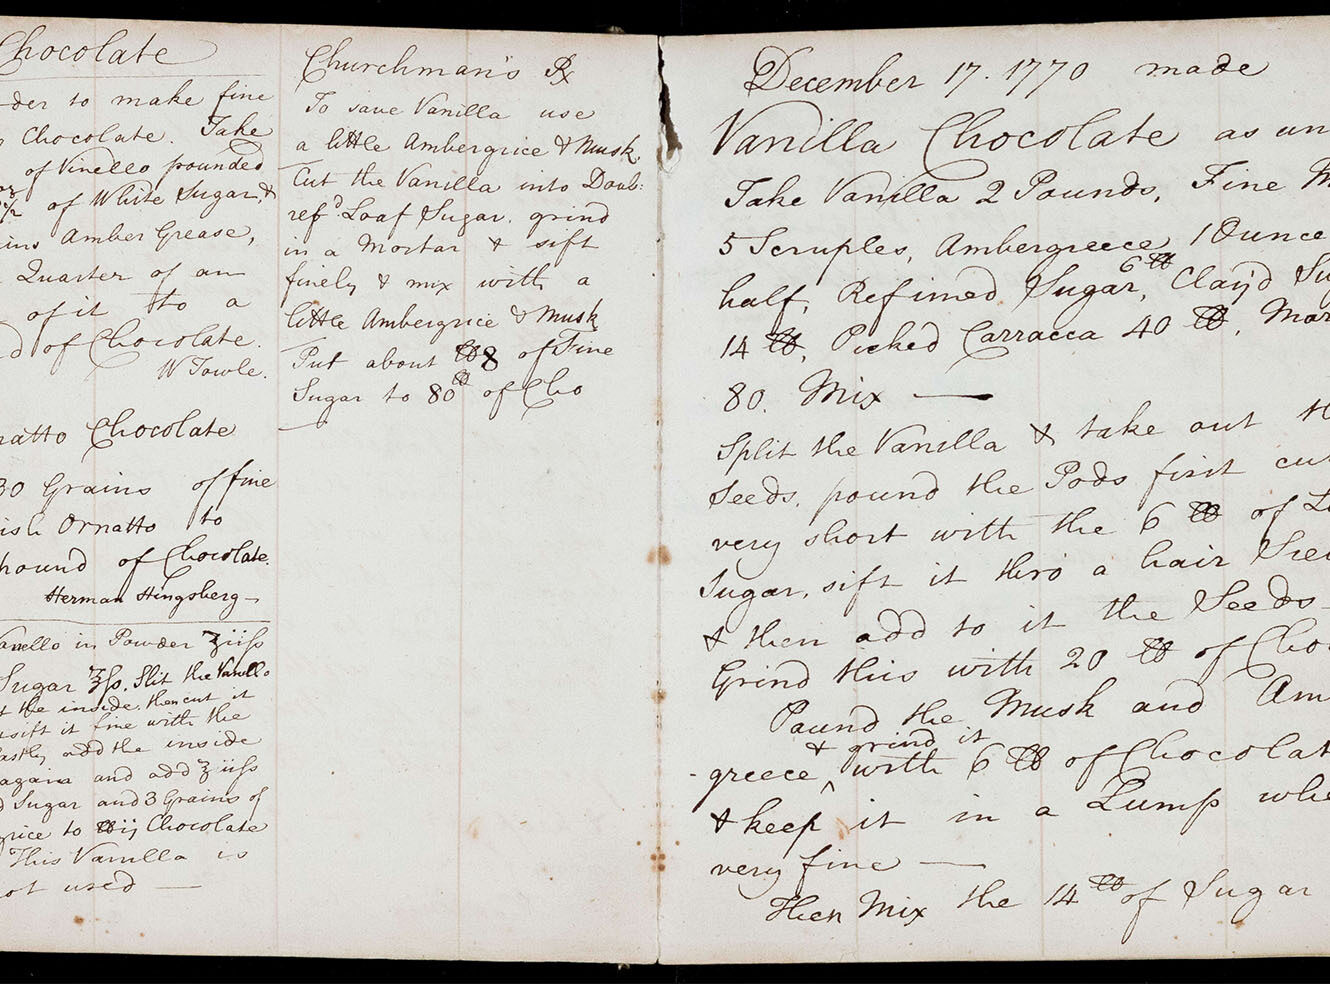 Chocolate
der to make fine
Chocolate. Take
of Vinello pounded
of White Sugar, &
ins Amber Grease,
Quarter of an
of it to a
d of Chocolate.
W Towle.
natto Chocolate
30 Grains of fine
ish Ornatto to
pound of Chocolate.
Herman Hingsberg
Vanello in Powder ʒiiſs
Sugar ʒſs. Slit the Vanello
t the inside, then cut it
& sift it fine with the
lastly add the inside
again and add ʒiiſs
d Sugar and 3 Grains of
grice to ℔ij Chocolate
This Vanilla is
not used —
Churchman's ℞
To save Vanilla use
a little Ambergrice & Musk.
Cut the Vanilla into Doub:
refd. Loaf Sugar. grind
in a Mortar & sift
finely & mix with a
little Ambergrice & Musk
Put about ℔8 of Fine
Sugar to 80 ℔ of Cho
December 17. 1770 made
Vanilla Chocolate as un
Take Vanilla 2 Pounds, Fine M
5 Scruples, Ambergreece, 1 Ounce
half, Refined Sugar, 6 ℔ Clay'd Su
14 ℔, Picked Carracca 40 ℔, Mar
80. Mix —
Split the Vanilla & take out th
Seeds, pound the Pods first cut
very short with the 6 ℔ of Lo
Sugar, sift it thro' a hair Siev
& then add to it the Seeds —
Grind this with 20 ℔ of Choc
Pound the Musk and Am
greece & grind it with 6 ℔ of Chocolat
& keep it in a Lump whe
very fine —
Then Mix the 14 ℔ of Sugar